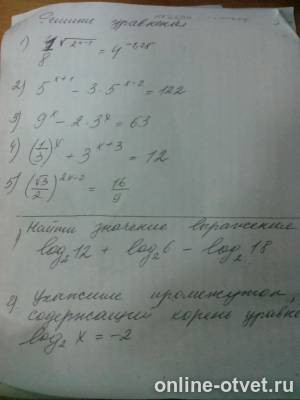 Решите уравнения
1) 1/8 √(2x-1) = 4^-1,25
2) 5^x+1 - 3·5^x-2 = 122
3) 9^x - 2·3^x = 63
4) (1/3)^x + 3^x+3 = 12
5) (√3/2)^2x-2 = 16/9
1) Найти значение выражения
log₂12 + log₂6 - log₂18
2) Укажите промежуток,
содержащий корень уравне
log₂ x = -2
online-otvet.ru